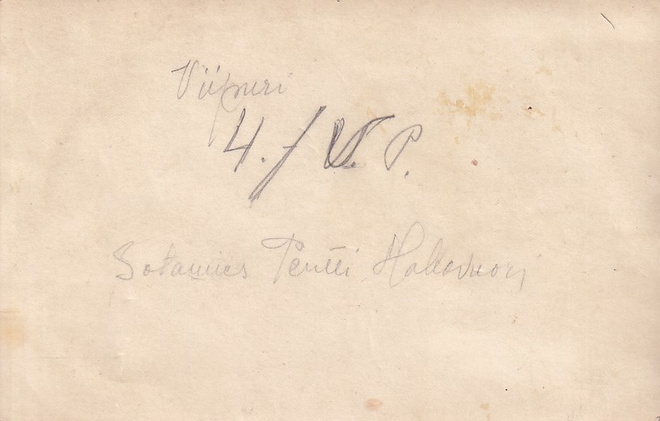 Viipuri
4./V. P.
Sotamies Pentti